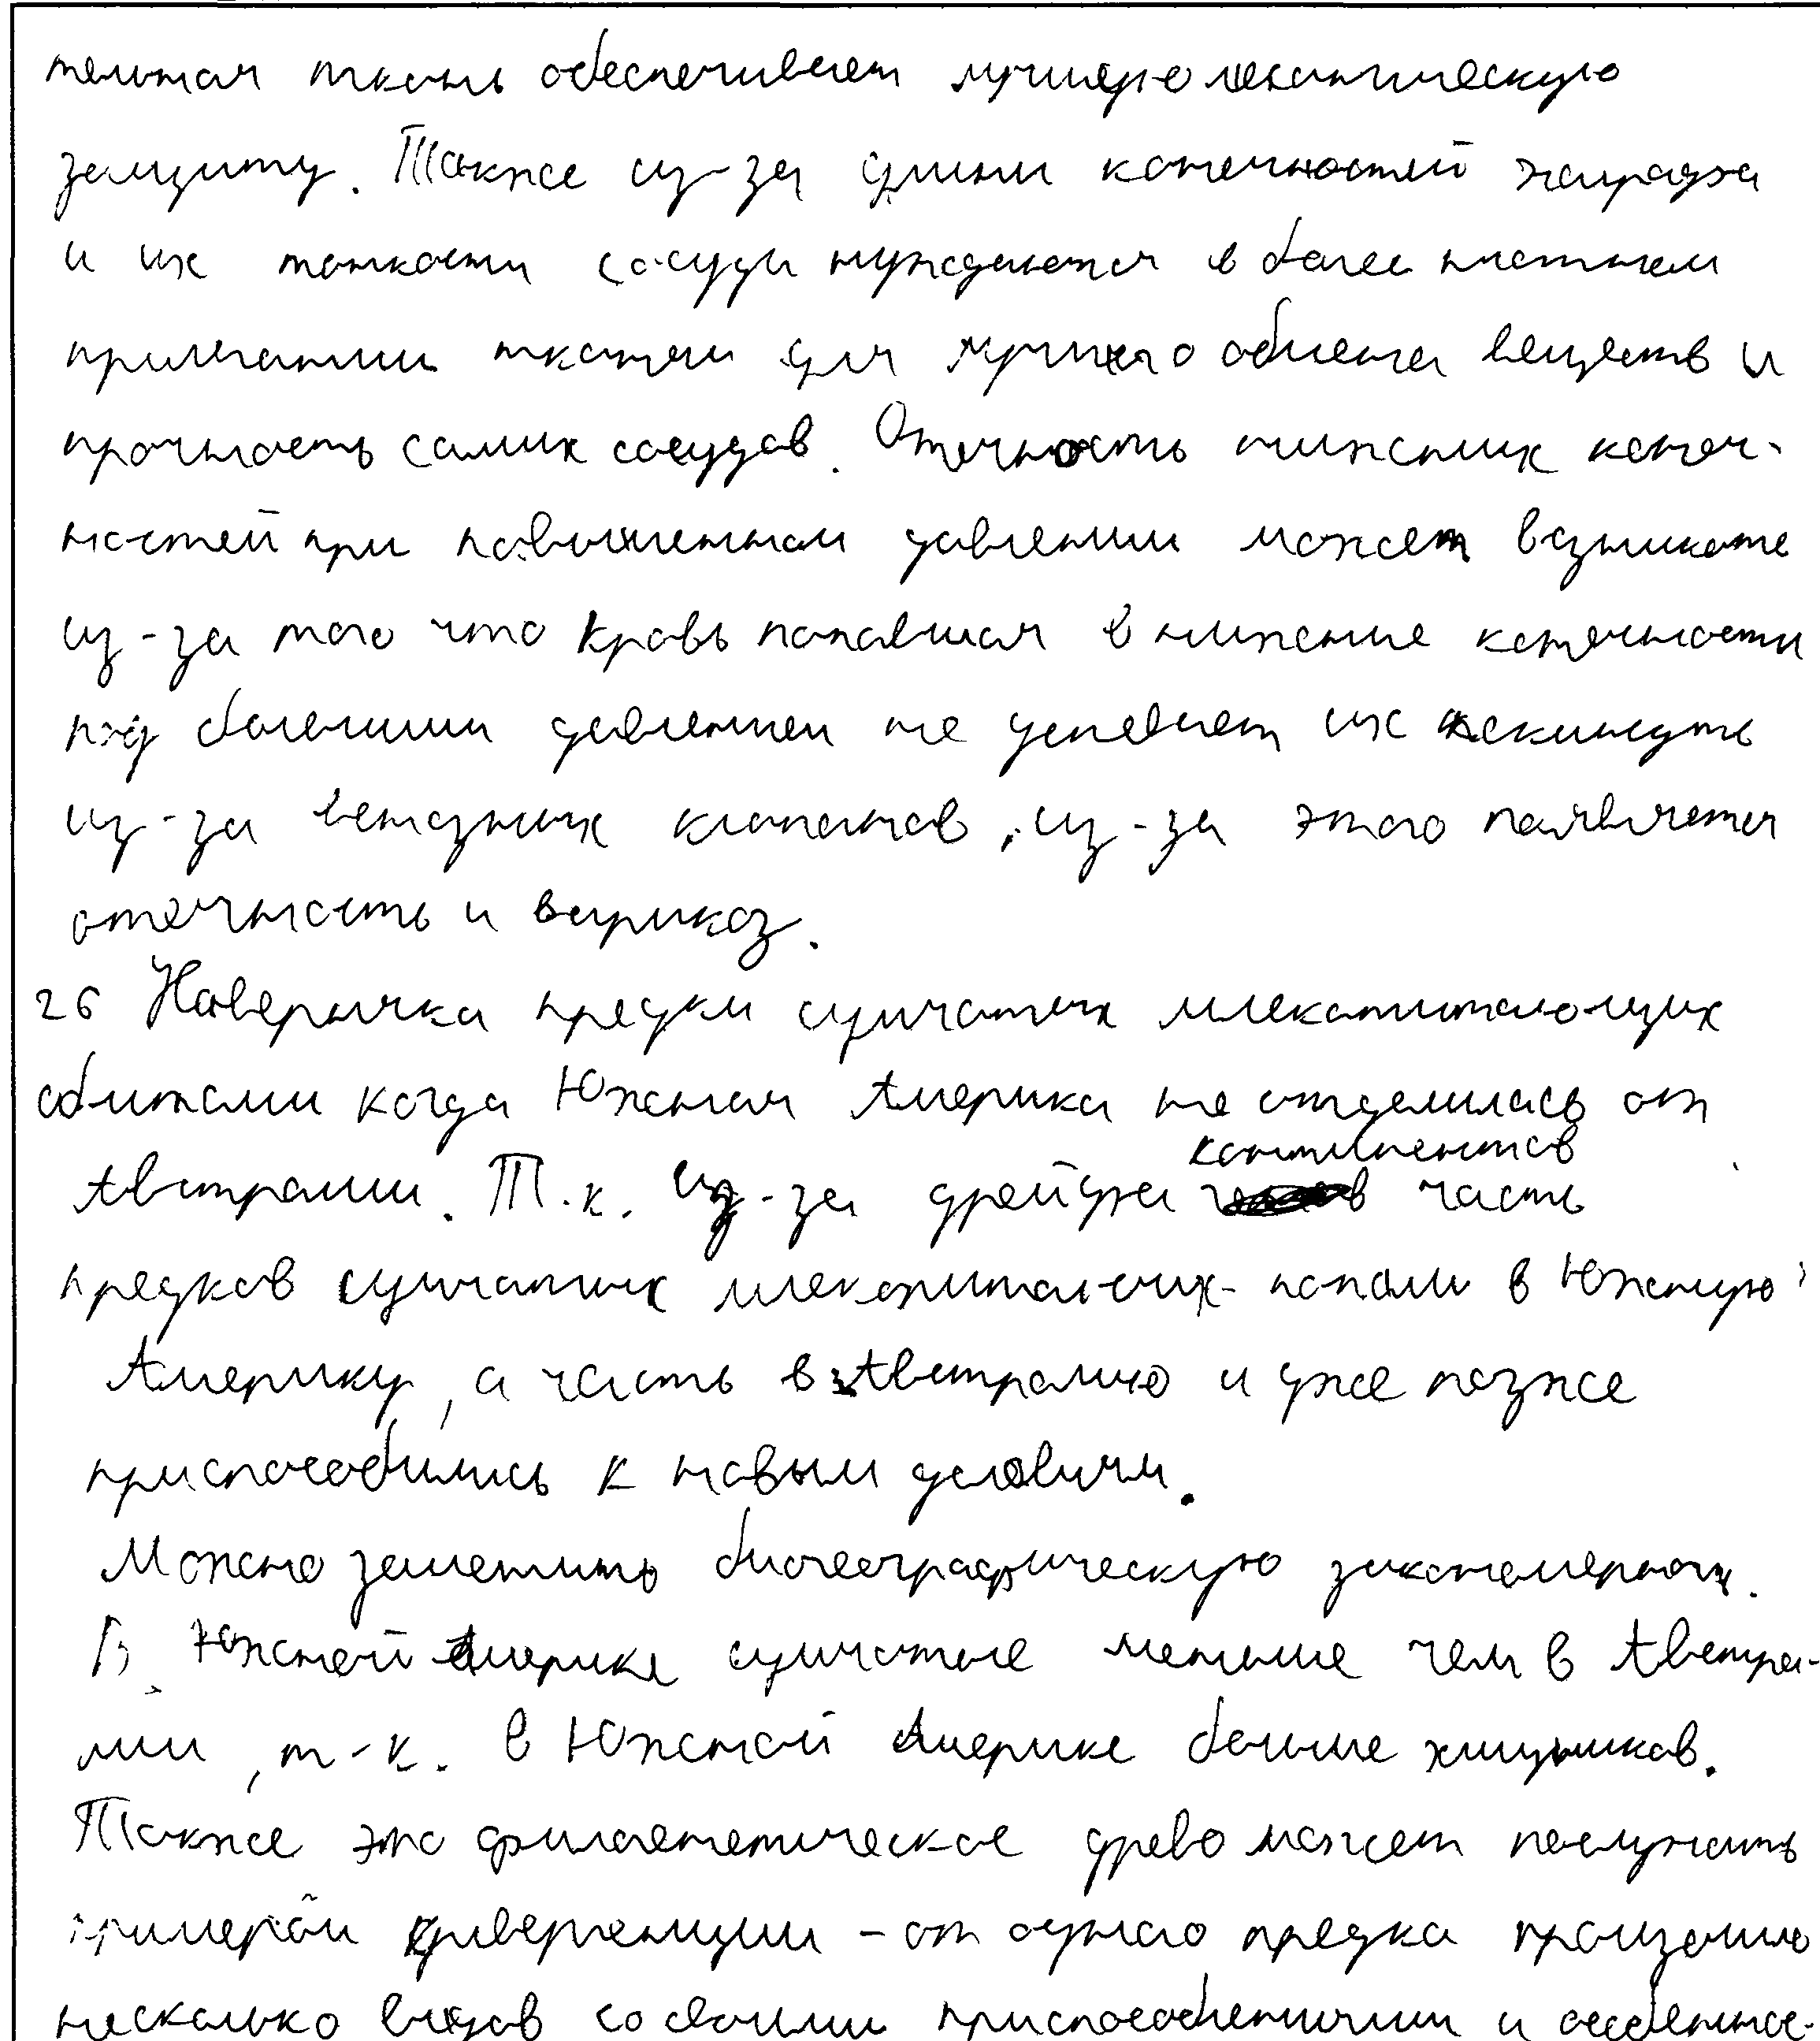 тельная ткань обеспечивает лучшую механическую
защиту. Также из-за длины конечностей жирафа
и их тонкости сосуды нуждаются в более плотном
прилегании ткани для лучшего обмена веществ и
прочность самих сосудов. Отечность нижних конеч-
ностей при повышенном давлении может возникать
из-за того что кровь попавшая в нижние конечности
под большим давлением не успевает их покинуть
из-за венозных клапанов, из-за этого появляется
отечность и варикоз.
26 Наверняка предки сумчатых млекопитающих
обитали когда Южная Америка не отделилась от
Австралии. Т.к. из-за дрейфа континентов часть
предков сумчатых млекопитающих попали в Южную
Америку, а часть в Австралию и уже позже
приспособились к новым условиям.
Можно заметить биогеографическую закономерность.
В Южной Америке сумчатые меньше чем в Австра-
лии, т-к. в Южной Америке больше хищников.
Также это филогенетическое древо может послужить
примером дивергенции - от одного предка произошло
несколько видов со своими приспособлениями и особенно-